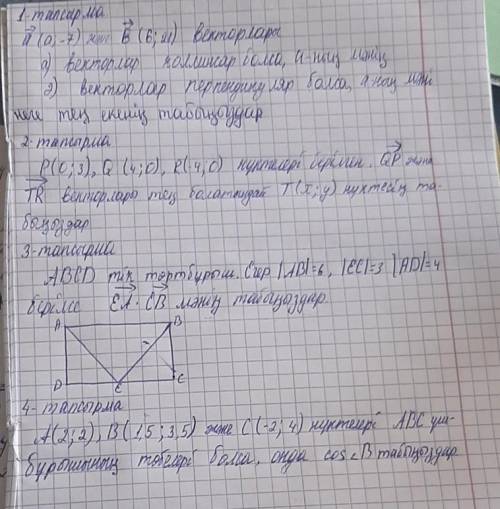 1-тапсырма
a (a; -7) және B (6; 11) векторлары
а) векторлар коллинар болса, а-ның мәнің
2) векторлар перпендикуляр болса, а ның мәні
неге тең екенің табыңыздар
2-тапсырма
P(0; 3), Q (4; 0), R(-4; 0) нүктелері берілген. QP және
TR векторлары тең болатындай T(x; y) нүктесің та-
быңыздар
3-тапсырма
ABCD тік төртбұрыш. Егер |AB|=6, |EC|=3 |AD|=4
берілсе EA · CB мәнің табыңыздар.
A B
D E C
4-тапсырма
A(2; 2), B(1,5; 3,5) және C(-2; 4) нүктелері ABC үш-
бұрышының төбелері болса, онда cos∠B табыңыздар